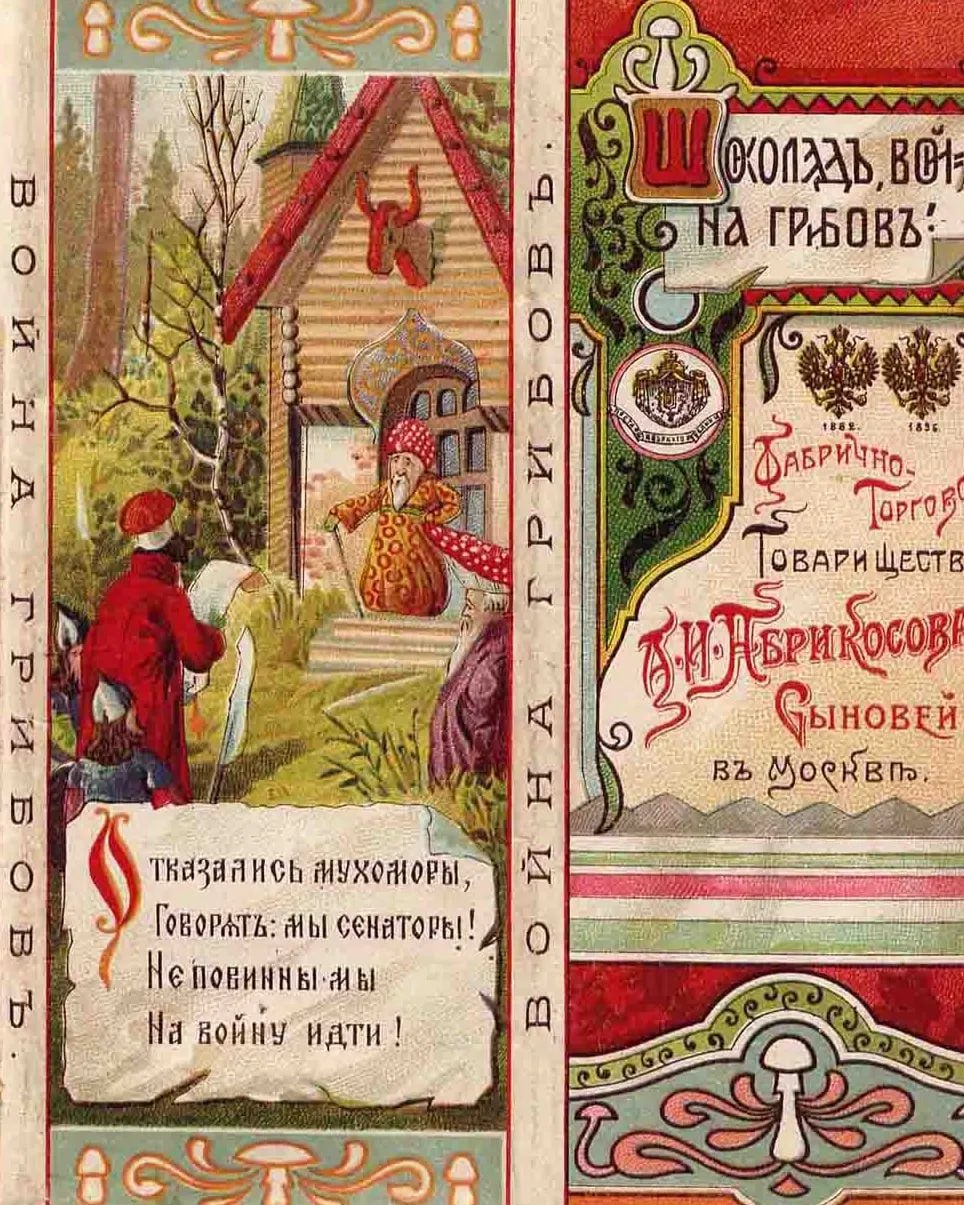 ВОЙНА ГРИБОВЪ.
Отказались мухоморы,
Говорятъ: мы сенаторы!
Не повинны мы
На войну идти!
ВОЙНА ГРИБОВЪ.
Шоколадъ, вой-
на грибовъ!
1882. 1896
Фабрично-
Торгово
Товариществ
А.И. Абрикосова
Сыновей
въ Москвѣ.